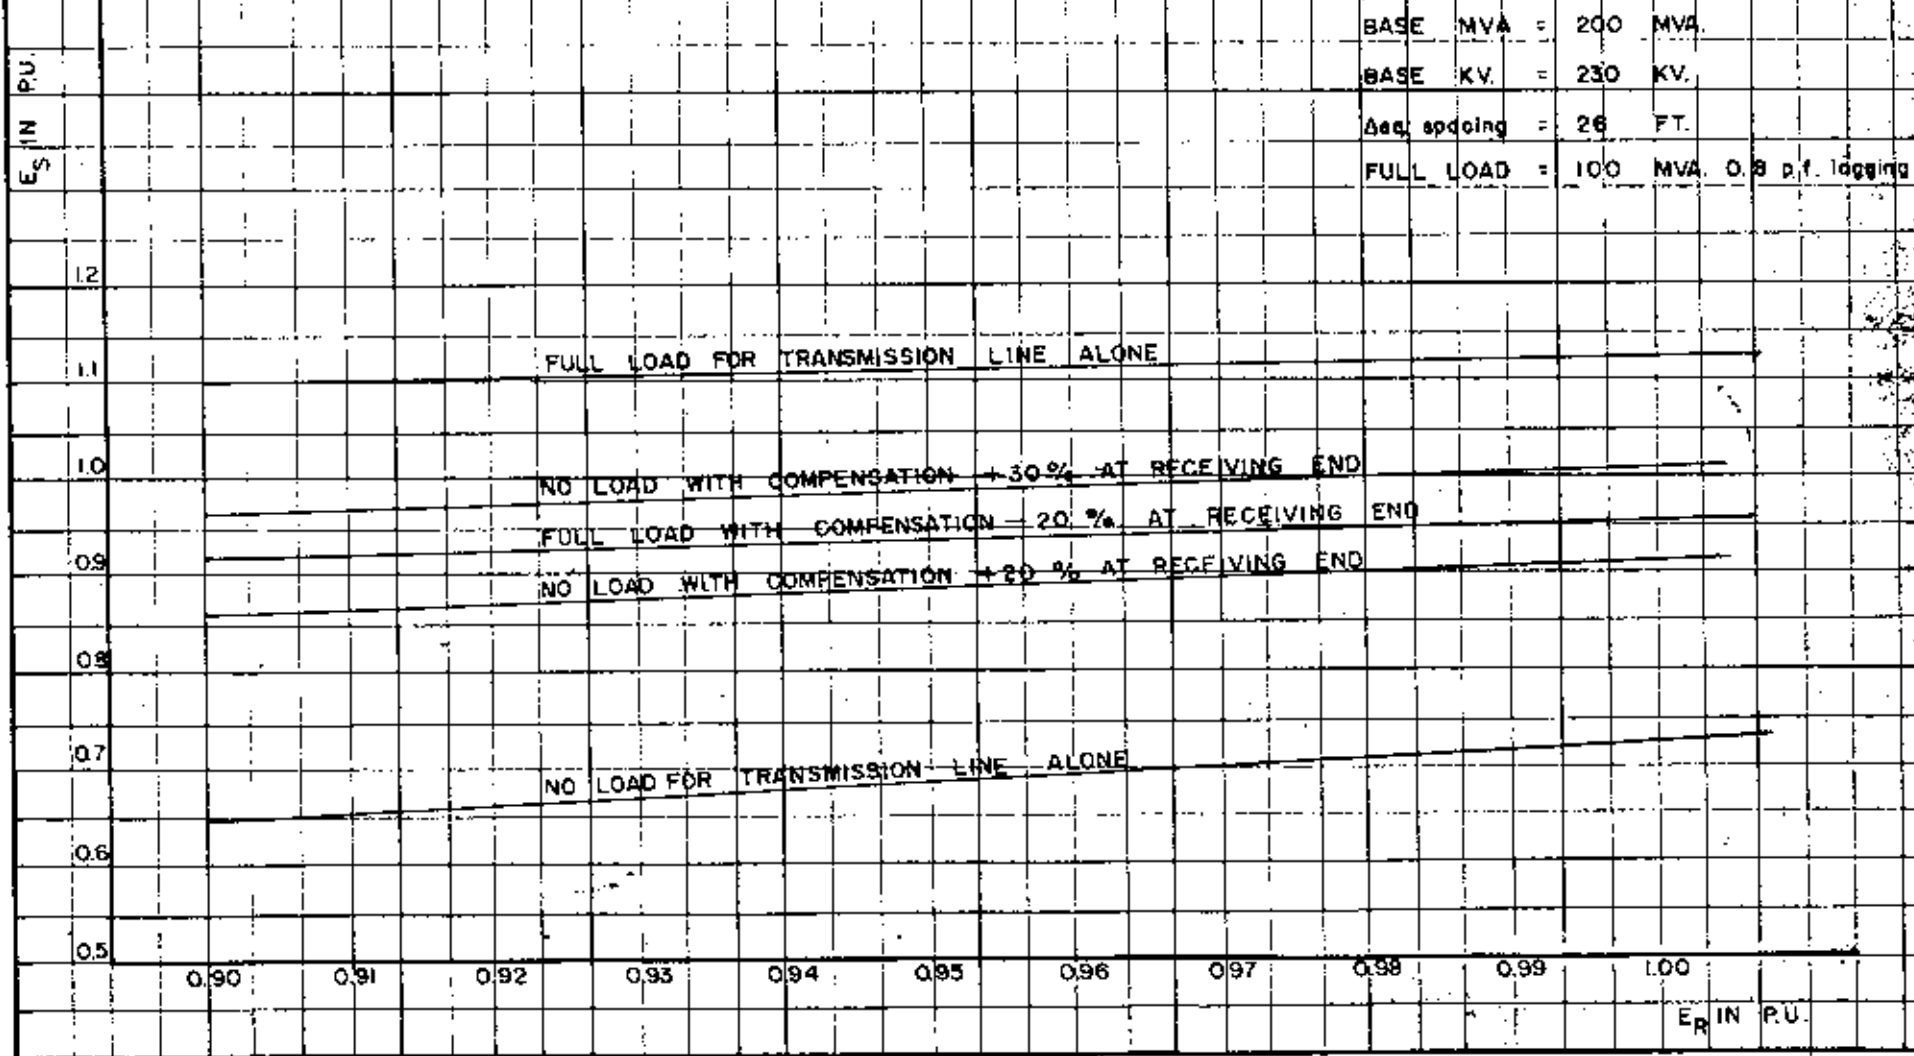 BASE MVA = 200 MVA.
BASE KV. = 230 KV.
Δeq. spacing = 26 FT.
FULL LOAD = 100 MVA. 0.8 p.f. lagging
ES IN P.U.
1.2
1.1
FULL LOAD FOR TRANSMISSION LINE ALONE
1.0
NO LOAD WITH COMPENSATION +30% AT RECEIVING END
FULL LOAD WITH COMPENSATION -20 % AT RECEIVING END
0.9
NO LOAD WITH COMPENSATION +20 % AT RECEIVING END
0.8
0.7
NO LOAD FOR TRANSMISSION LINE ALONE
0.6
0.5
0.90 0.91 0.92 0.93 0.94 0.95 0.96 0.97 0.98 0.99 1.00
ER IN P.U.